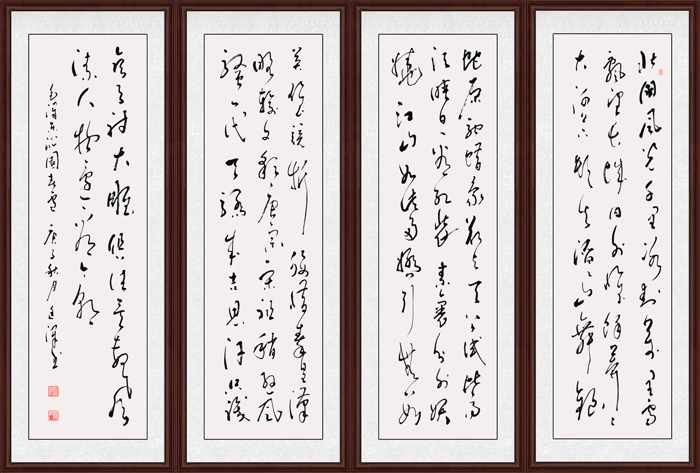 北國風光千里冰封万里雪
飘望长城内外惟馀莽莽
大河上下顿失滔滔山舞银
蛇原驰蜡象欲与天公试比高
须晴日看红装素裹分外妖
娆江山如此多娇引无数
英雄竞折腰惜秦皇汉
略输文采唐宗宋祖稍逊风
骚一代天骄成吉思汗只识
弯弓射大雕俱往矣数风
流人物还看今朝
毛泽东沁园春雪 庚子秋月